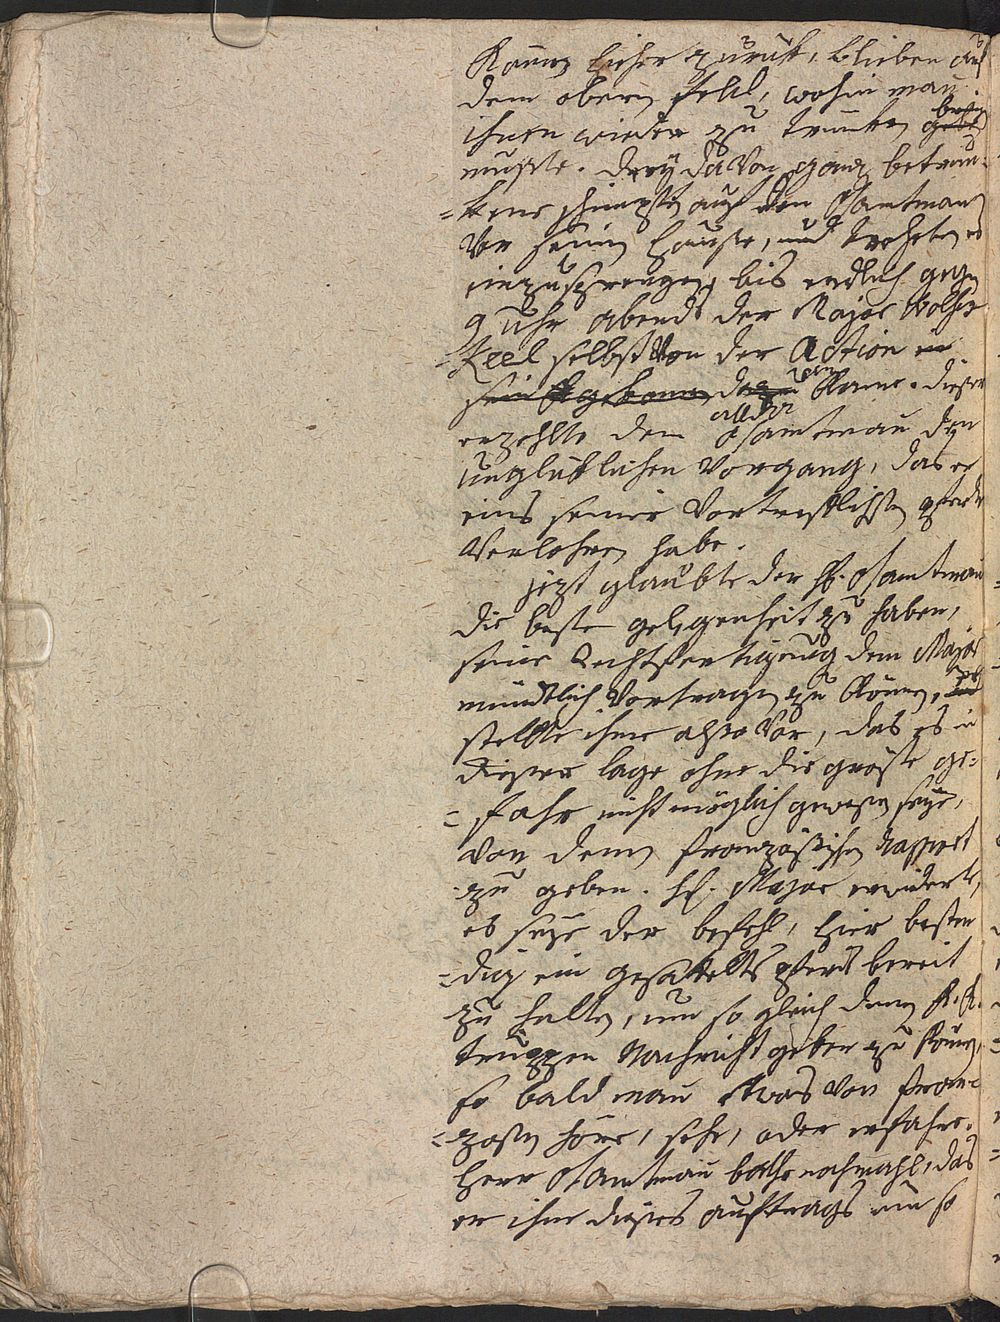 Kamen hieher zurük, blieben auf
dem obern feld, wohin man
ihnen wieder zu trinken bringen
musste. drey davon ganz betrun=
=kene schimpften auf den Oamtmann
vor seinem Hause, und droheten es
einzusprengen, bis endlich gegen
9 uhr abends der Major Wolfs
Keel selbst von der Action
kame. dieser
erzehlte dem Oamtman den
unglüklichen Vorgang, das er
eins seiner Vortreflichsten pferde
Verlohren habe.
jezt glaubte der H. Oamtman
die beste gelegenheit zu haben,
seine Rechtfertigung dem Major
mündtlich Vortragen zu können,
stellte ihme also Vor, das es in
dieser lage ohne die gröste ge=
=fahr nicht möglich gewesen seye,
von denen französischen Rapport
zu geben. H. Major erwiderte,
es seye der befehl, hier bestän
=dig ein gesatteltes pferd bereit
zu halten, um so gleich denen K. K.
truppen Nachricht geben zu können,
so bald man etwas von fran=
=zosen höre, sehe, oder erfahre.
Herr Oamtman bathe nochmahl, das
er ihme dieses auftrags um so